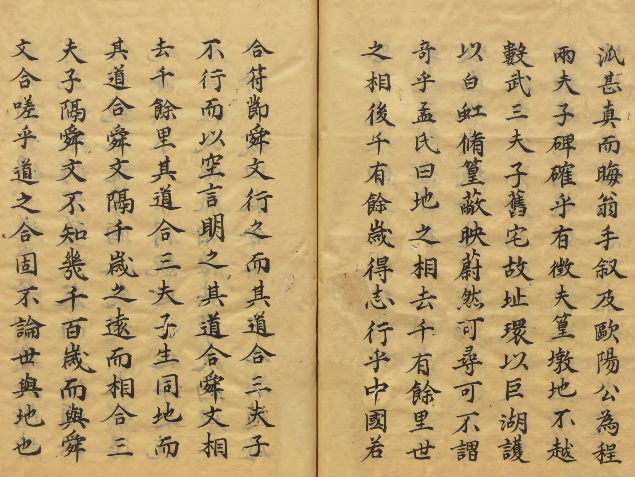 泒甚真而晦翁手叙及歐陽公為程
兩夫子碑確乎有徴夫篁墩地不越
數武三夫子舊宅故址環以巨湖護
以白虹脩篁蔽映蔚然可尋可不謂
竒乎孟氏曰地之相去千有餘里世
之相後千有餘歲得志行乎中國若
合符節舜文行之而其道合三夫子
不行而以空言明之其道合舜文相
去千餘里其道合三夫子生同地而
其道合舜文隔千歲之遠而相合三
夫子隔舜文不知幾千百歲而與舜
文合嗟乎道之合固不論世與地也